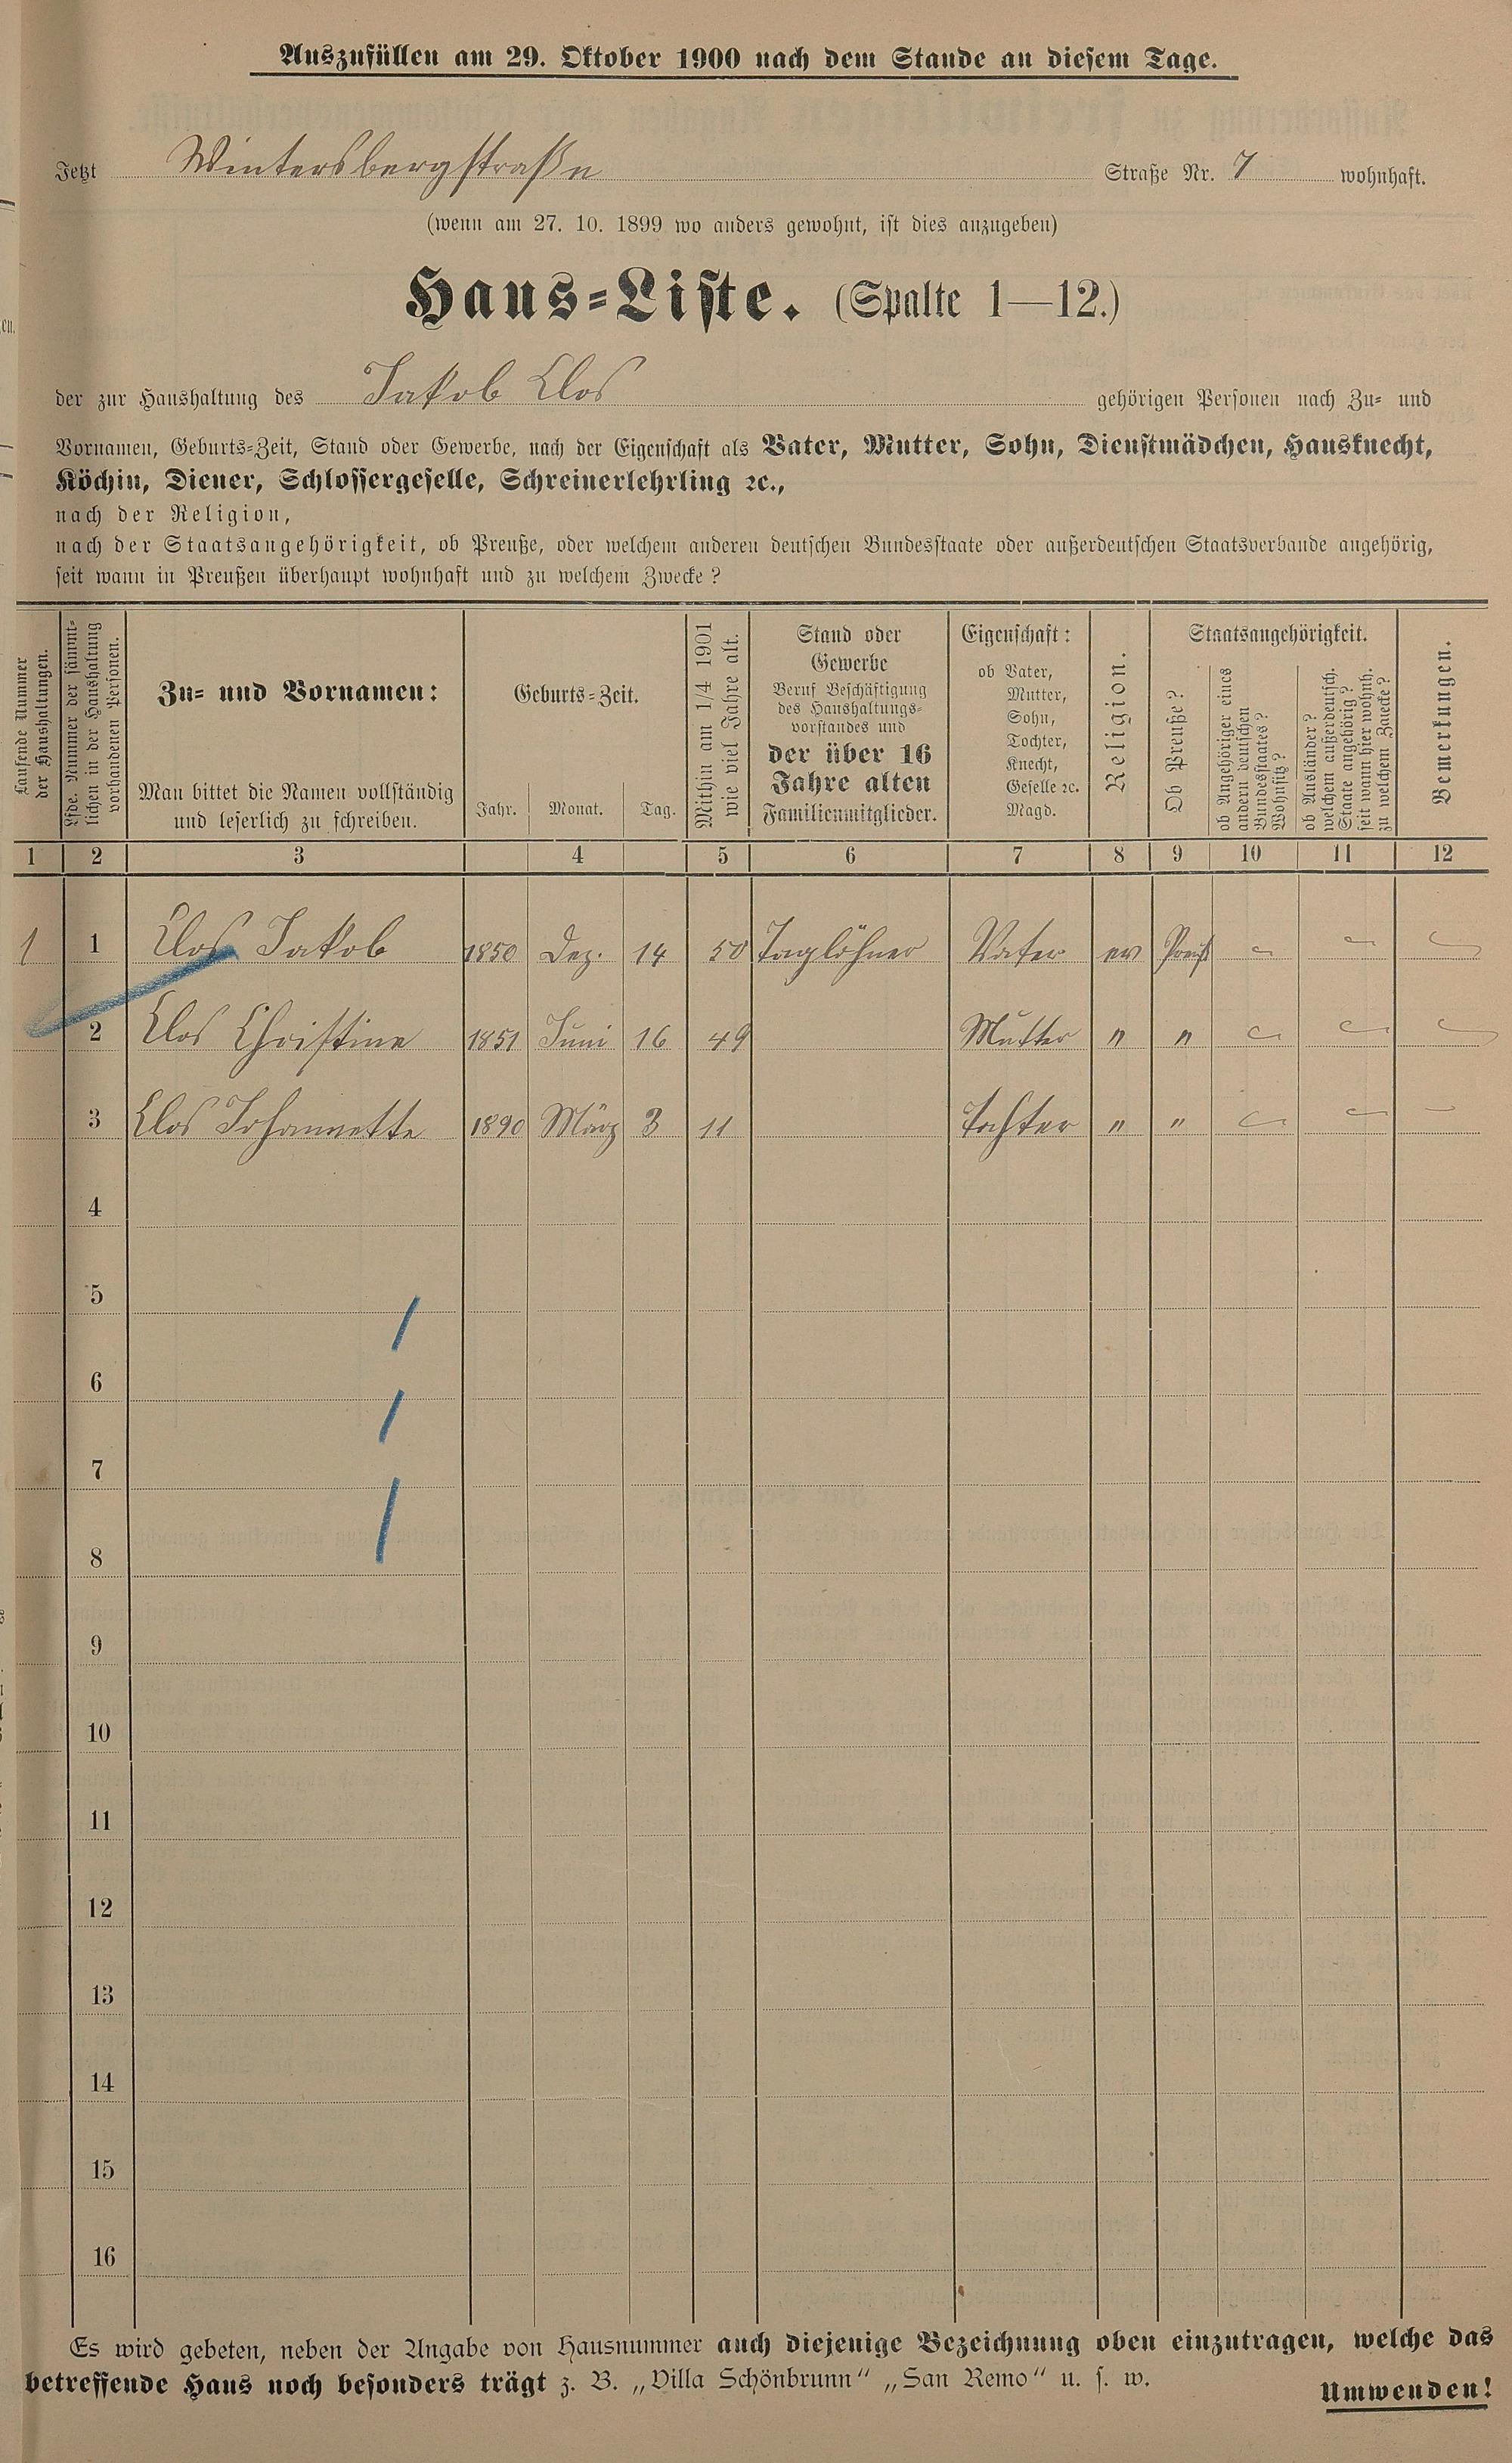 Auszufüllen am 29. Oktober 1900 nach dem Stande an diesem Tage.
Jetzt Wintersbergstraße Straße Nr. 7 wohnhaft.
(wenn am 27. 10. 1899 wo anders gewohnt, ist dies anzugeben)
Haus-Liste. (Spalte 1—12.)
der zur Haushaltung des Jakob Clos gehörigen Personen nach Zu- und
Vornamen, Geburts-Zeit, Stand oder Gewerbe, nach der Eigenschaft als Vater, Mutter, Sohn, Dienstmädchen, Hausknecht,
Köchin, Diener, Schlossergeselle, Schreinerlehrling ꝛc.,
nach der Religion,
nach der Staatsangehörigkeit, ob Preuße, oder welchem anderen deutschen Bundesstaate oder außerdeutschen Staatsverbande angehörig,
seit wann in Preußen überhaupt wohnhaft und zu welchem Zwecke?
Laufende Nummer
der Haushaltungen.
Lfde. Nummer der sämmt-
lichen in der Haushaltung
vorhandenen Personen.
Zu- und Vornamen:
Man bittet die Namen vollständig
und leserlich zu schreiben.
Geburts-Zeit.
Jahr. Monat. Tag.
Mithin am 1/4 1901
wie viel Jahre alt.
Stand oder
Gewerbe
Beruf Beschäftigung
des Haushaltungs-
vorstandes und
der über 16
Jahre alten
Familienmitglieder.
Eigenschaft:
ob Vater,
Mutter,
Sohn,
Tochter,
Knecht,
Geselle ꝛc.
Magd.
Religion.
Staatsangehörigkeit.
Ob Preuße?
ob Angehöriger eines
andern deutschen
Bundesstaates?
Wohnsitz?
ob Ausländer?
welchem außerdeutsch.
Staate angehörig?
seit wann hier wohnh.
zu welchem Zwecke?
Bemerkungen.
1 2 3 4 5 6 7 8 9 10 11 12
1 1 Clos Jakob 1850 Dez. 14 50 Taglöhner Vater ev Preuß
2 Clos Christine 1851 Juni 16 49 Mutter " "
3 Clos Johannette 1890 März 3 11 Tochter " "
4
5
6
7
8
9
10
11
12
13
14
15
16
Es wird gebeten, neben der Angabe von Hausnummer auch diejenige Bezeichnung oben einzutragen, welche das
betreffende Haus noch besonders trägt z. B. „Villa Schönbrunn" „San Remo" u. s. w.
Umwenden!